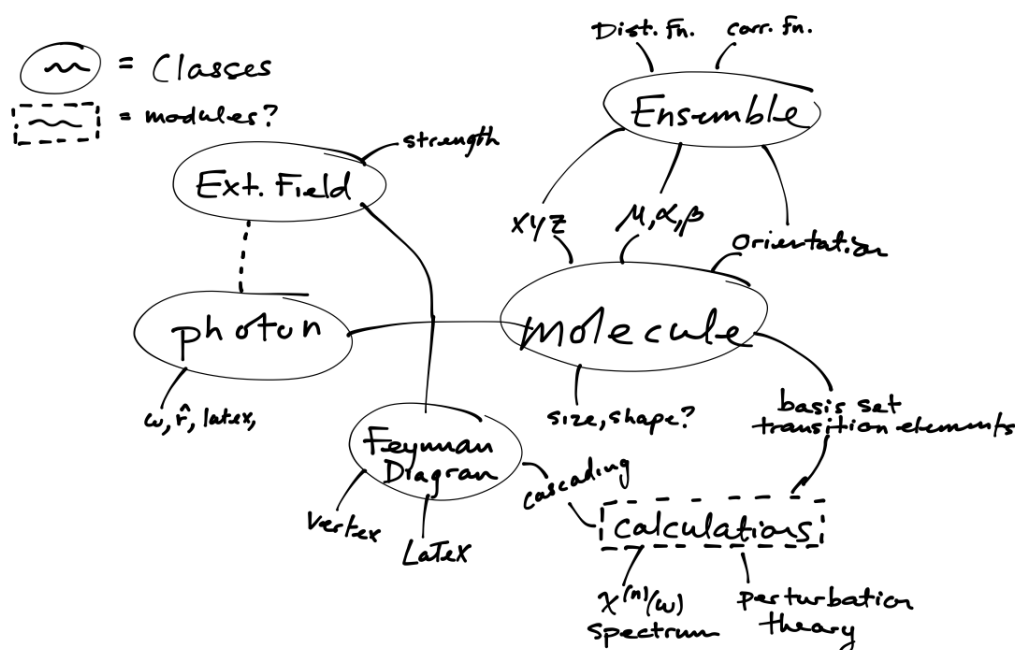 = Classes
= modules?
Dist. Fn.
corr. fn.
Ensemble
strength
Ext. Field
XYZ
μ, α, β
orientation
photon
molecule
ω, r̂, latex,
size, shape?
basis set
transition elements
Feynman
Diagram
cascading
vertex
LaTeX
calculations
χ⁽ⁿ⁾(ω)
spectrum
perturbation
theory